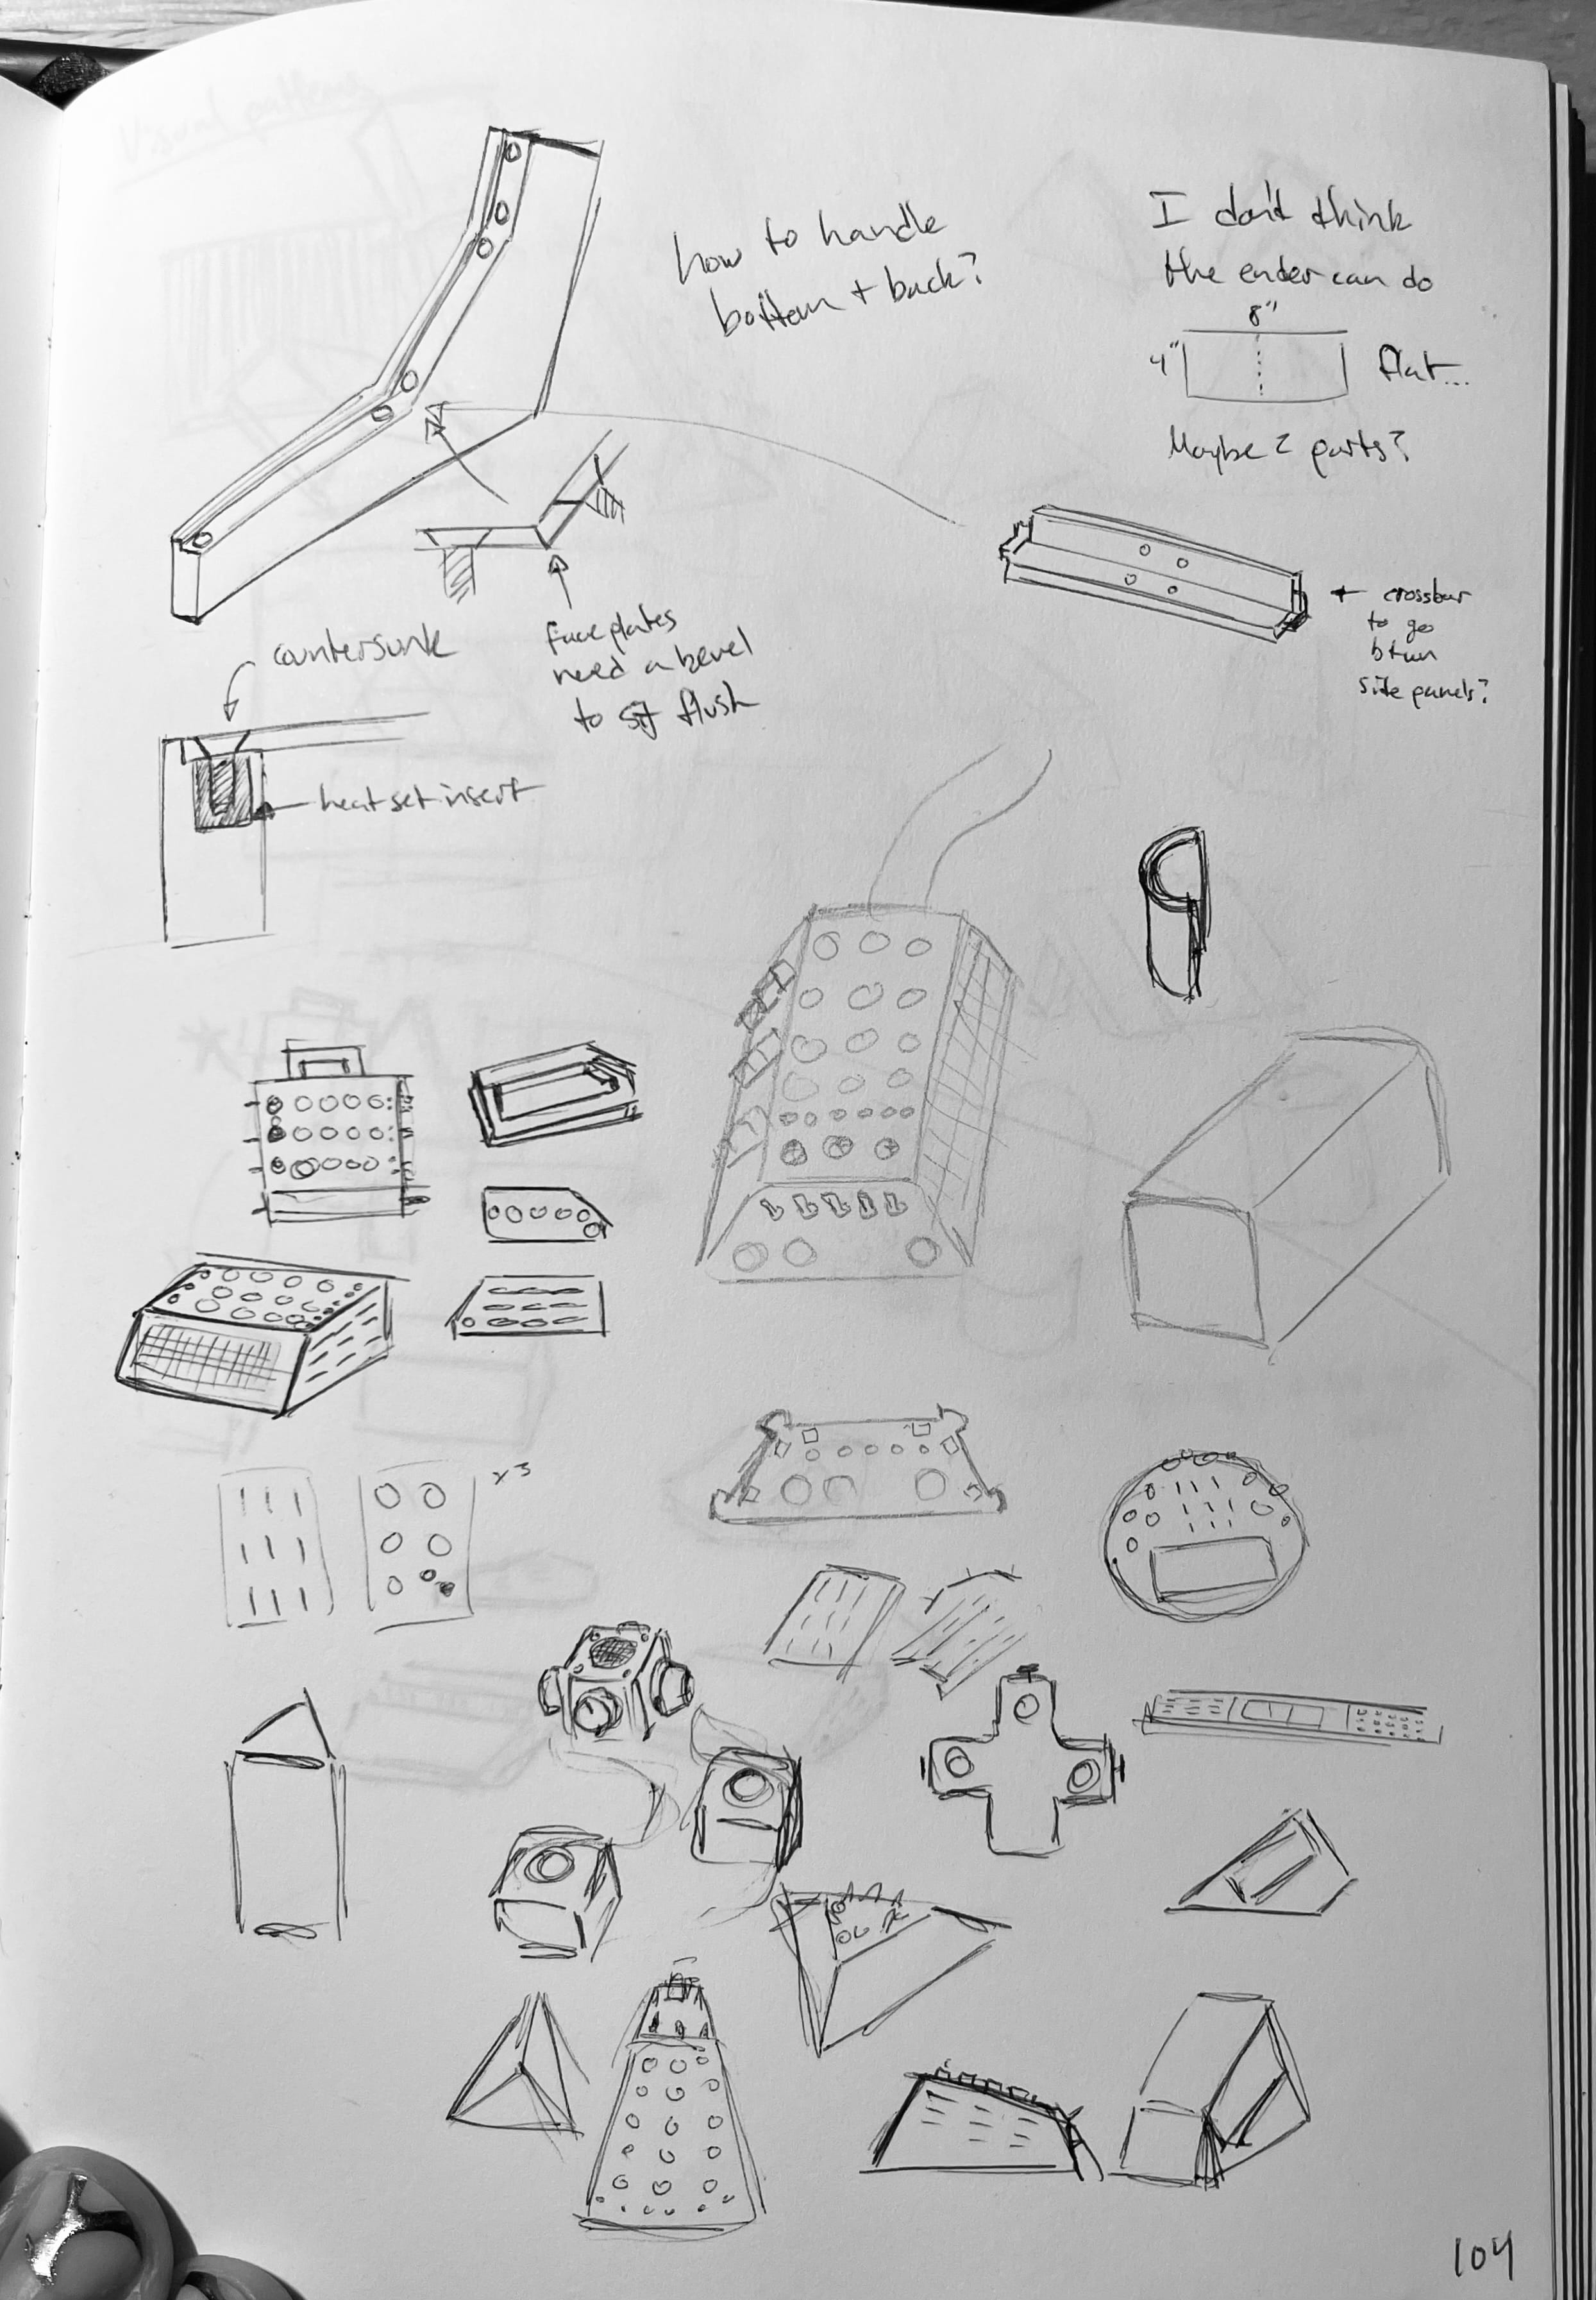 how to handle
bottom + back?
I don't think
the ender can do
8"
4"
flat...
Maybe 2 parts?
← crossbar
to go
btwn
side panels?
countersunk
faceplates
need a bevel
to sit flush
heat set insert
x3
104